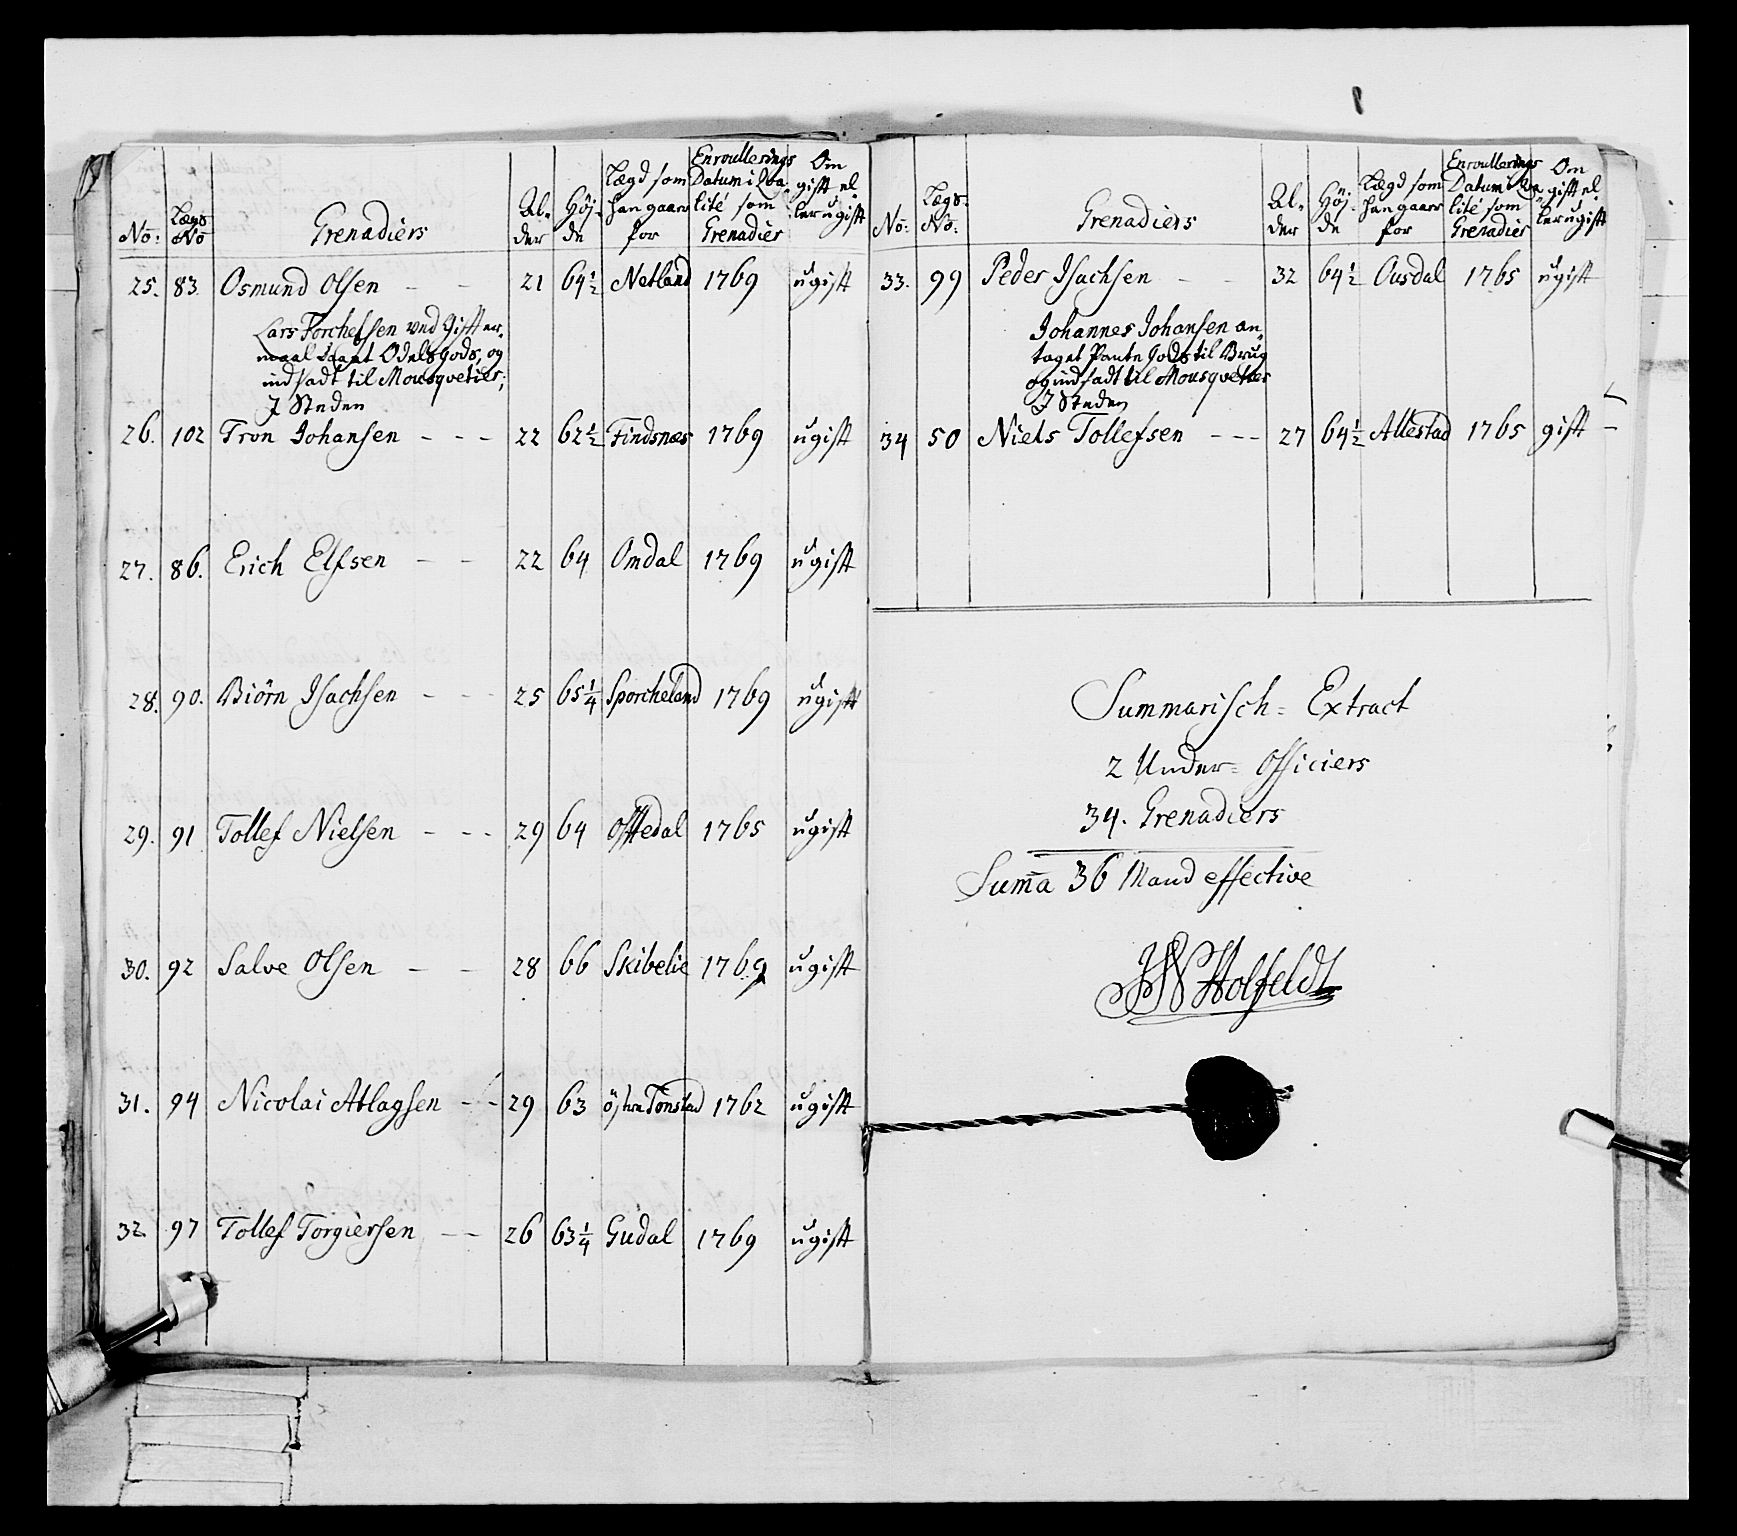 No: Lægs No Grenadiers Al- der Höj- de Lægd som han gaaer for Enroullerings Datum i Qva- lité som Grenadier Om gift el- ler ugift
25. 83. Osmund Olsen - - 21 64½ Netland 1769 ugift
Lars Torchelsen ved Gifter-
maal faaet Odelsgods, og
indsadt til Mousqvetier;
I Steden
26. 102 Tron Johansen - - - 22 62½ Findsnæs 1769 ugift
27. 86. Erich Elfsen - - 22 64 Omdal 1769 ugift
28. 90. Biörn Isachsen - - - 25 65¼ Sporcheland 1769 ugift
29. 91 Tollef Nielsen - - - 29 64 Offtedal 1765 ugift
30. 92 Salve Olsen - - 28 66 Skibelie 1769 ugift
31. 94 Nicolai Atlagsen - - 29 63 östre Tonstad 1762 ugift
32. 97 Tollef Torgiersen - - 26 63¼ Gudal 1769 ugift
No: Lægs No: Grenadiers Al- der Höj- de Lægd som han gaaer for Enroullerings Datum i Qva- lité som Grenadier Om gift el- ler ugift
33. 99 Peder Isachsen - - 32 64½ Ousdal 1765 ugift
Johannes Johansen an-
taget Pante Gods til Brug
og indsadt til Mousqvetier
I Steden
34 50 Niels Tollefsen - - - 27 64½ Allestad 1765 gift -
Summarisch= Extract
2 Under= Officiers
34. Grenadiers
Suma 36 Mand effective
Holfeldt